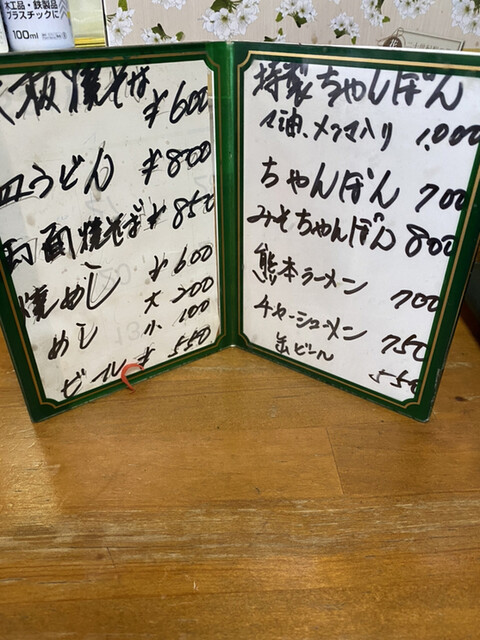 木工品・鉄製品
プラスチックに
100ml
板焼そば ¥600
皿うどん ¥800
両面焼そば ¥850
焼めし ¥600
めし 大 200
小 100
ビール 550
特製ちゃんぽん
1,000
ちゃんぽん 700
みそちゃんぽん 800
熊本ラーメン 700
チャーシューメン 750
缶ビール 550